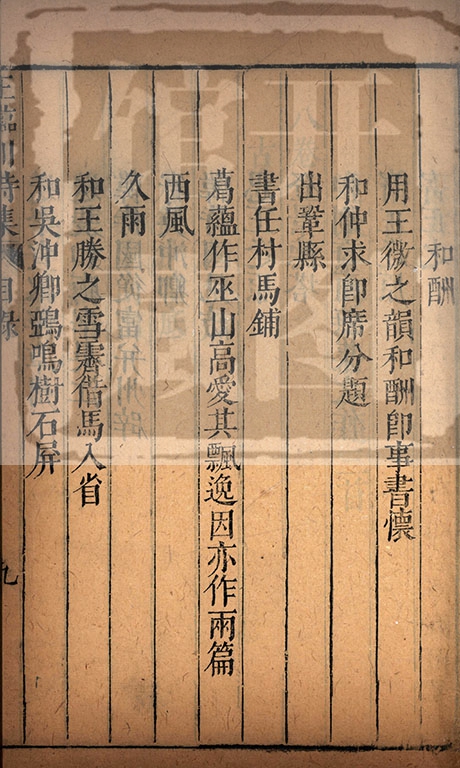 和酬
用王微之韻和酬卽事書懷
和仲求卽席分題
出鞏縣
書任村馬鋪
葛蘊作巫山高愛其飄逸因亦作兩篇
西風
久雨
和王勝之雪霽借馬入省
和吳沖卿鴉鳴樹石屏
王臨川詩集 目錄
九